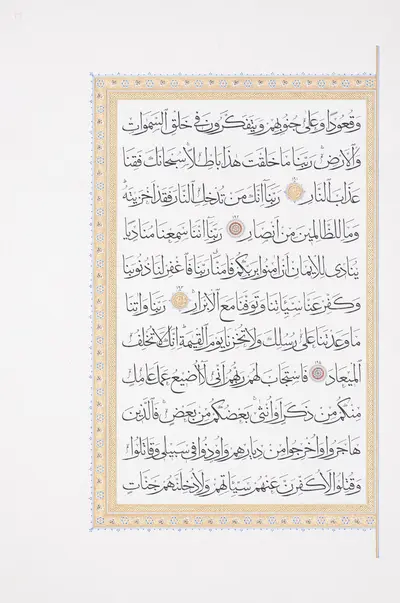 وقعودا وعلى جنوبهم ويتفكرون في خلق السموات
والارض ربنا ما خلقت هذا باطلا سبحانك فقنا
عذاب النار ربنا انك من تدخل النار فقد اخزيته
وما للظالمين من انصار ربنا اننا سمعنا مناديا
ينادى للايمان ان امنوا بربكم فامنا ربنا فاغفر لنا ذنوبنا
وكفر عنا سيئاتنا وتوفنا مع الابرار ربنا واتنا
ما وعدتنا على رسلك ولا تخزنا يوم القيمة انك لا تخلف
الميعاد فاستجاب لهم ربهم انى لا اضيع عمل عامل
منكم من ذكر او انثى بعضكم من بعض فالذين
هاجروا واخرجوا من ديارهم واوذوا فى سبيلى وقاتلوا
وقتلوا لاكفرن عنهم سيئاتهم ولادخلنهم جنات